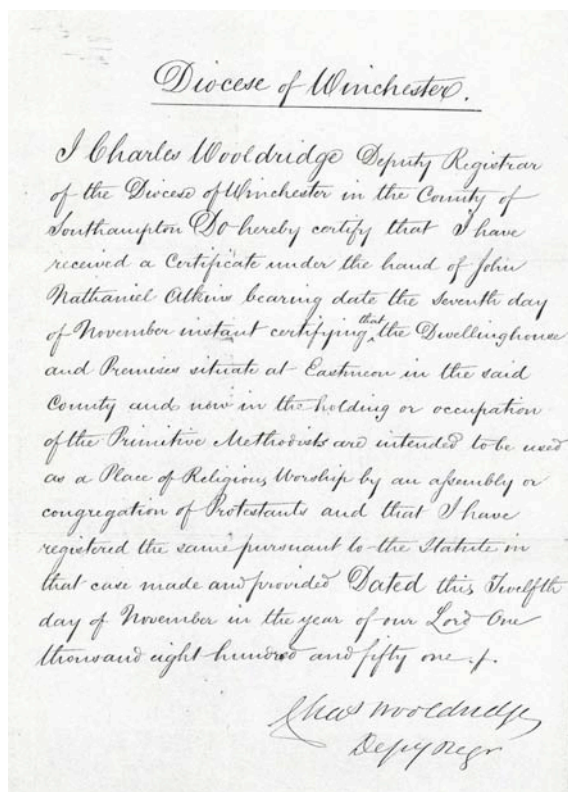 Diocese of Winchester.
I Charles Wooldridge Deputy Registrar
of the Diocese of Winchester in the County of
Southampton Do hereby certify that I have
received a Certificate under the hand of John
Nathaniel Atkins bearing date the seventh day
of November instant certifying that the Dwellinghouse
and Premises situate at Eastmeon in the said
County and now in the holding or occupation
of the Primitive Methodists are intended to be used
as a Place of Religious Worship by an assembly or
congregation of Protestants and that I have
registered the same pursuant to the Statute in
that case made and provided Dated this Twelfth
day of November in the year of our Lord One
thousand eight hundred and fifty one
Chas Wooldridge
Depy Regr